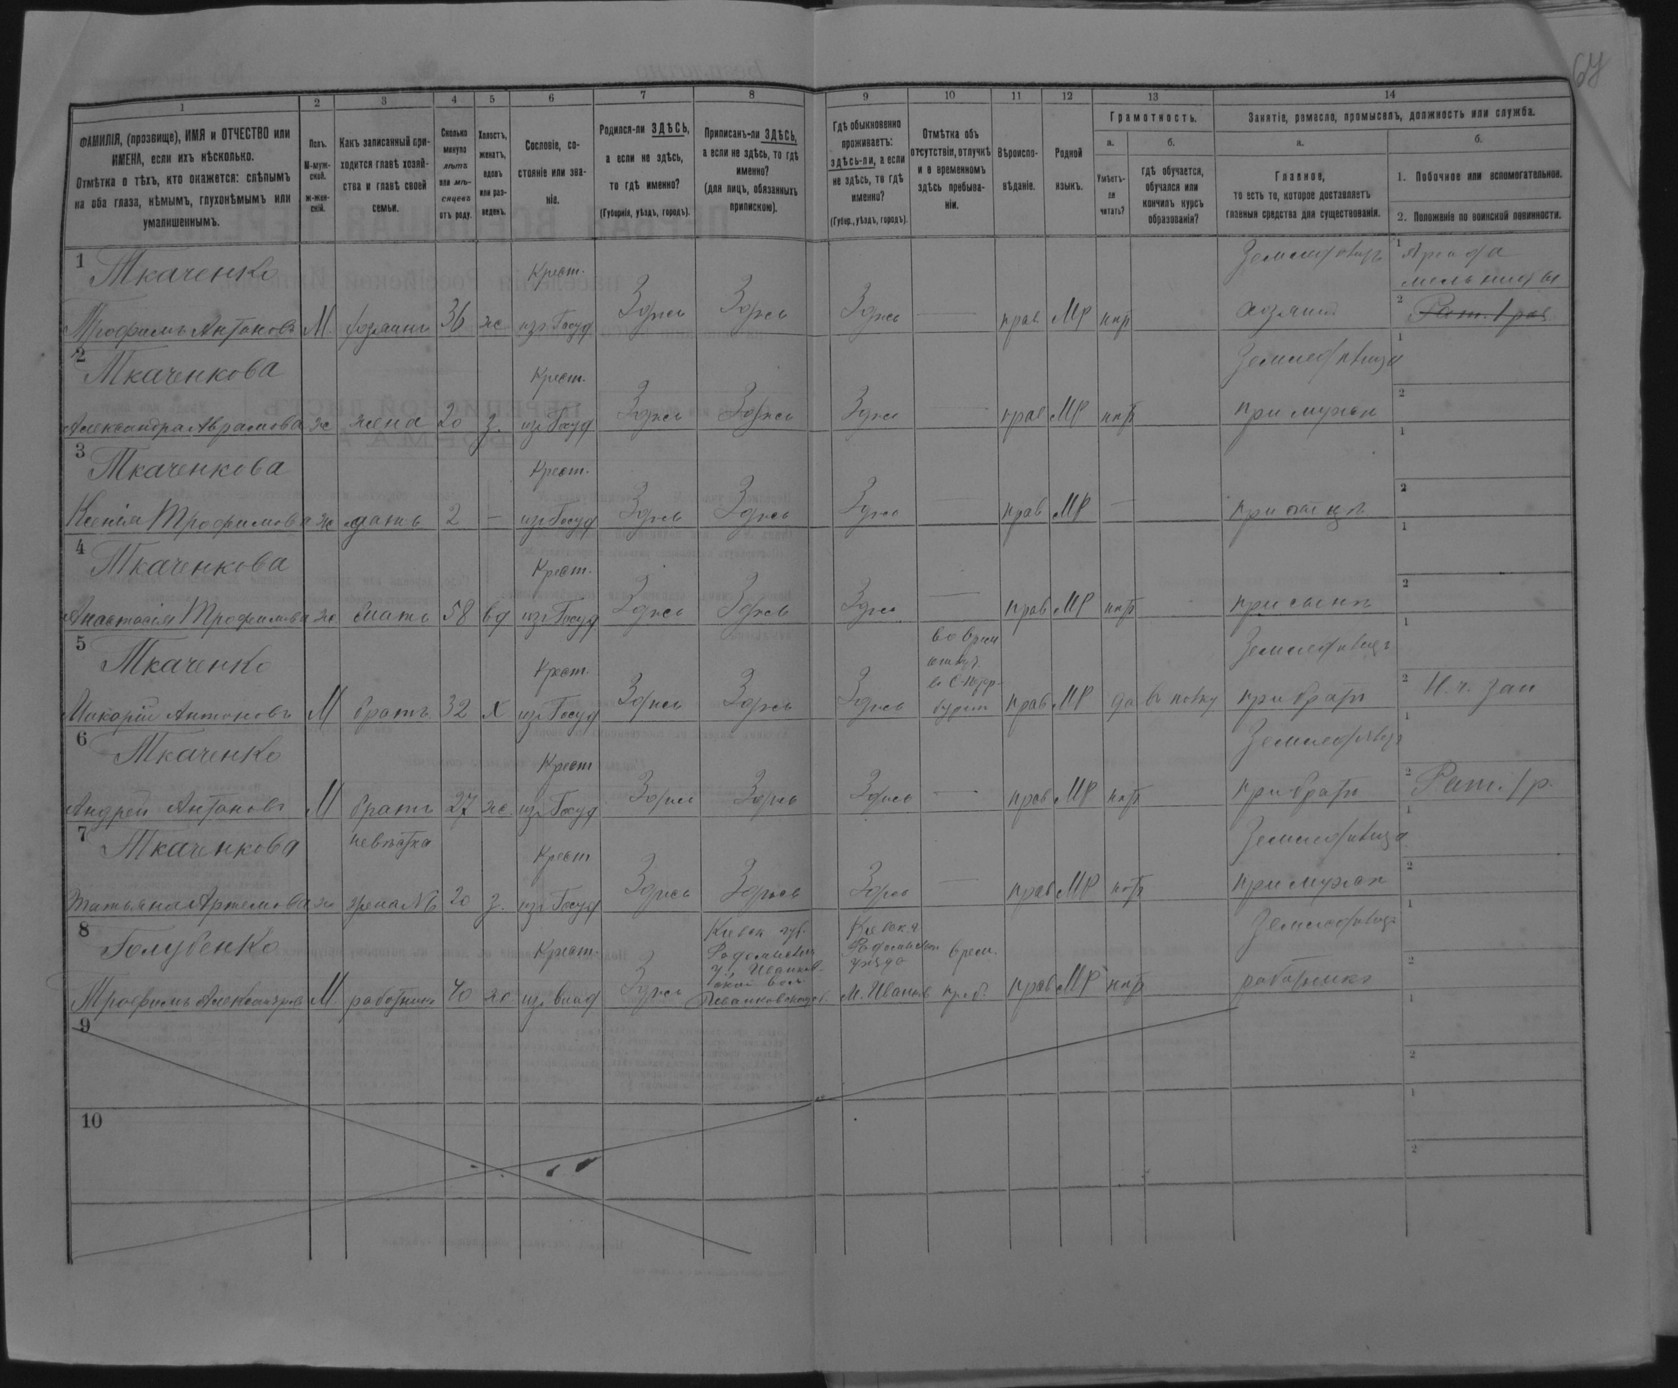 64
1 2 3 4 5 6 7 8 9 10 11 12 13 14
ФАМИЛІЯ, (прозвище), ИМЯ и ОТЧЕСТВО или ИМЕНА, если ихъ нѣсколько.
Отмѣтка о тѣхъ, кто окажется: слѣпымъ на оба глаза, нѣмымъ, глухонѣмымъ или умалишеннымъ.
Полъ. М-мужской. ж-женскій.
Какъ записанный приходится главѣ хозяйства и главѣ своей семьи.
Сколько минуло лѣтъ или мѣсяцевъ отъ роду.
Холостъ, женатъ, вдовъ или разведенъ.
Сословіе, состояніе или званіе.
Родился-ли ЗДѢСЬ, а если не здѣсь, то гдѣ именно?
(Губернія, уѣздъ, городъ).
Приписанъ-ли ЗДѢСЬ, а если не здѣсь, то гдѣ именно?
(для лицъ, обязанныхъ припискою).
Гдѣ обыкновенно проживаетъ: здѣсь-ли, а если не здѣсь, то гдѣ именно?
(Губер., уѣздъ, городъ).
Отмѣтка объ отсутствіи, отлучкѣ и о временномъ здѣсь пребываніи.
Вѣроисповѣданіе.
Родной языкъ.
Грамотность.
а. Умѣетъ-ли читать?
б. Гдѣ обучается, обучался или кончилъ курсъ образованія?
Занятіе, ремесло, промыселъ, должность или служба.
а. Главное, то есть то, которое доставляетъ главныя средства для существованія.
б.
1. Побочное или вспомогательное.
2. Положеніе по воинской повинности.
1 Ткаченко Крест. 1 Аренда
мельницы
Трофимъ Антоновъ М. хозяинъ 36 ж. изъ Госуд Здѣсь Здѣсь Здѣсь — прав МР нѣтъ хозяинъ 2
2 Ткаченкова Крест. 1
Александра Абрамова ж жена 20 з. изъ Госуд Здѣсь Здѣсь Здѣсь — прав МР нѣтъ при мужѣ 2
3 Ткаченкова Крест. 1
Ксенія Трофимова ж дочь 2 — изъ Госуд Здѣсь Здѣсь Здѣсь — прав МР — при отцѣ 2
4 Ткаченкова Крест. 1
Анастасія Трофимова ж мать 58 вд изъ Госуд Здѣсь Здѣсь Здѣсь — прав МР нѣтъ при сынѣ 2
5 Ткаченко Крест. 1
Макарій Антоновъ М братъ 32 Х изъ Госуд Здѣсь Здѣсь Здѣсь прав МР да въ полку при братѣ 2 Н. ч. зап
6 Ткаченко Крест 1
Андрей Антоновъ М братъ 27 ж. изъ Госуд Здѣсь Здѣсь Здѣсь — прав МР нѣтъ при братѣ 2 Рат. 1 р.
7 Ткаченкова невѣстка Крест 1
Татьяна Артемова ж жена № 6 20 з. изъ Госуд Здѣсь Здѣсь Здѣсь — прав МР нѣтъ при мужѣ 2
8 Голубенко Крест. Киевск губ. Радомысл. у. Иванков. вол. Киевск. Радомысл. уѣзда врем. 1
Трофимъ Александровъ М работникъ 40 ж изъ влад Здѣсь М. Иванков преб. прав МР нѣтъ работникъ 2
9 1
2
10 1
2